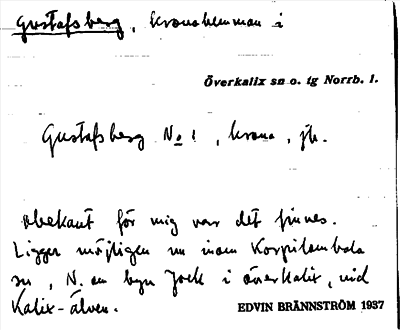 Gustafsberg, kronohemman i
Överkalix sn o. tg Norrb. l.
Gustafsberg No 1, krono, jb.
obekant för mig var det finnes.
Ligger möjligen nu inom Korpilombolo
sn, N. om byn Jock i överkalix, vid
Kalix-älven.
EDVIN BRÄNNSTRÖM 1937